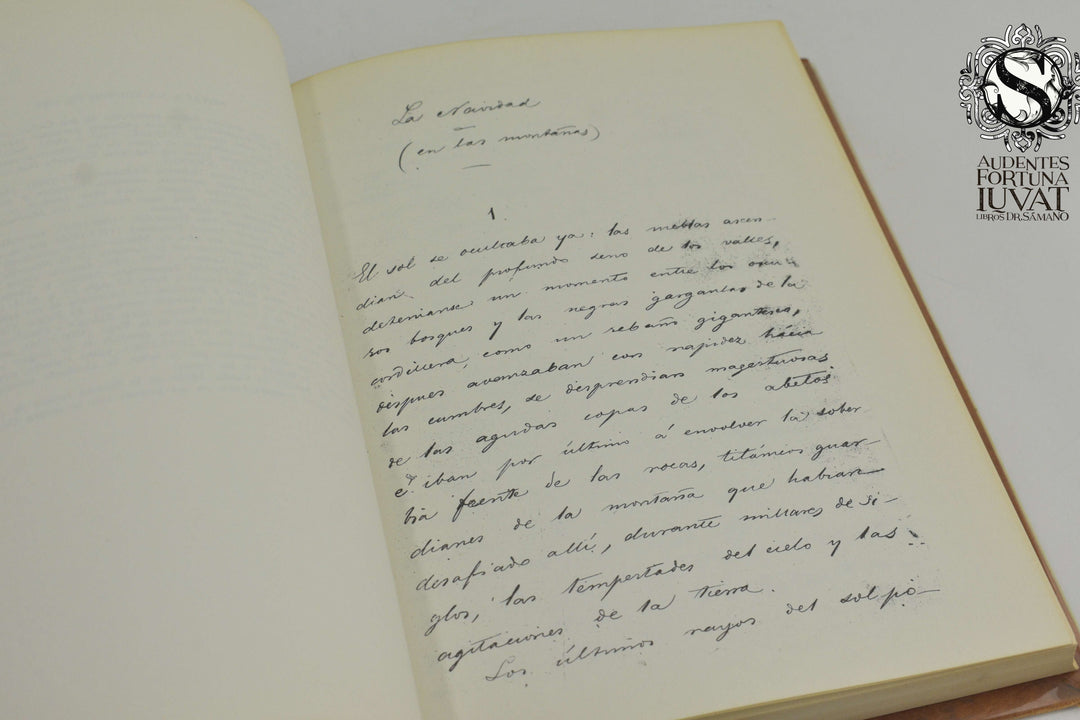 La Navidad
(en las montañas)
1.
El sol se ocultaba ya: las nieblas ascen-
dian del profundo seno de los valles,
deteníanse un momento entre los oscu-
ros bosques y las negras gargantas de la
cordillera, como un rebaño gigantesco,
despues avanzaban con rapidez hácia
las cumbres, se desprendian magestuosas
de las agudas copas de los abetos
é iban por último á envolver la sober-
bia frente de las rocas, titánicos guar-
dianes de la montaña que habian
desafiado allí, durante millares de si-
glos, las tempestades del cielo y las
agitaciones de la tierra.
Los últimos rayos del sol po-
S
AUDENTES
FORTUNA
IUVAT
LIBROS DR. SÁMANO